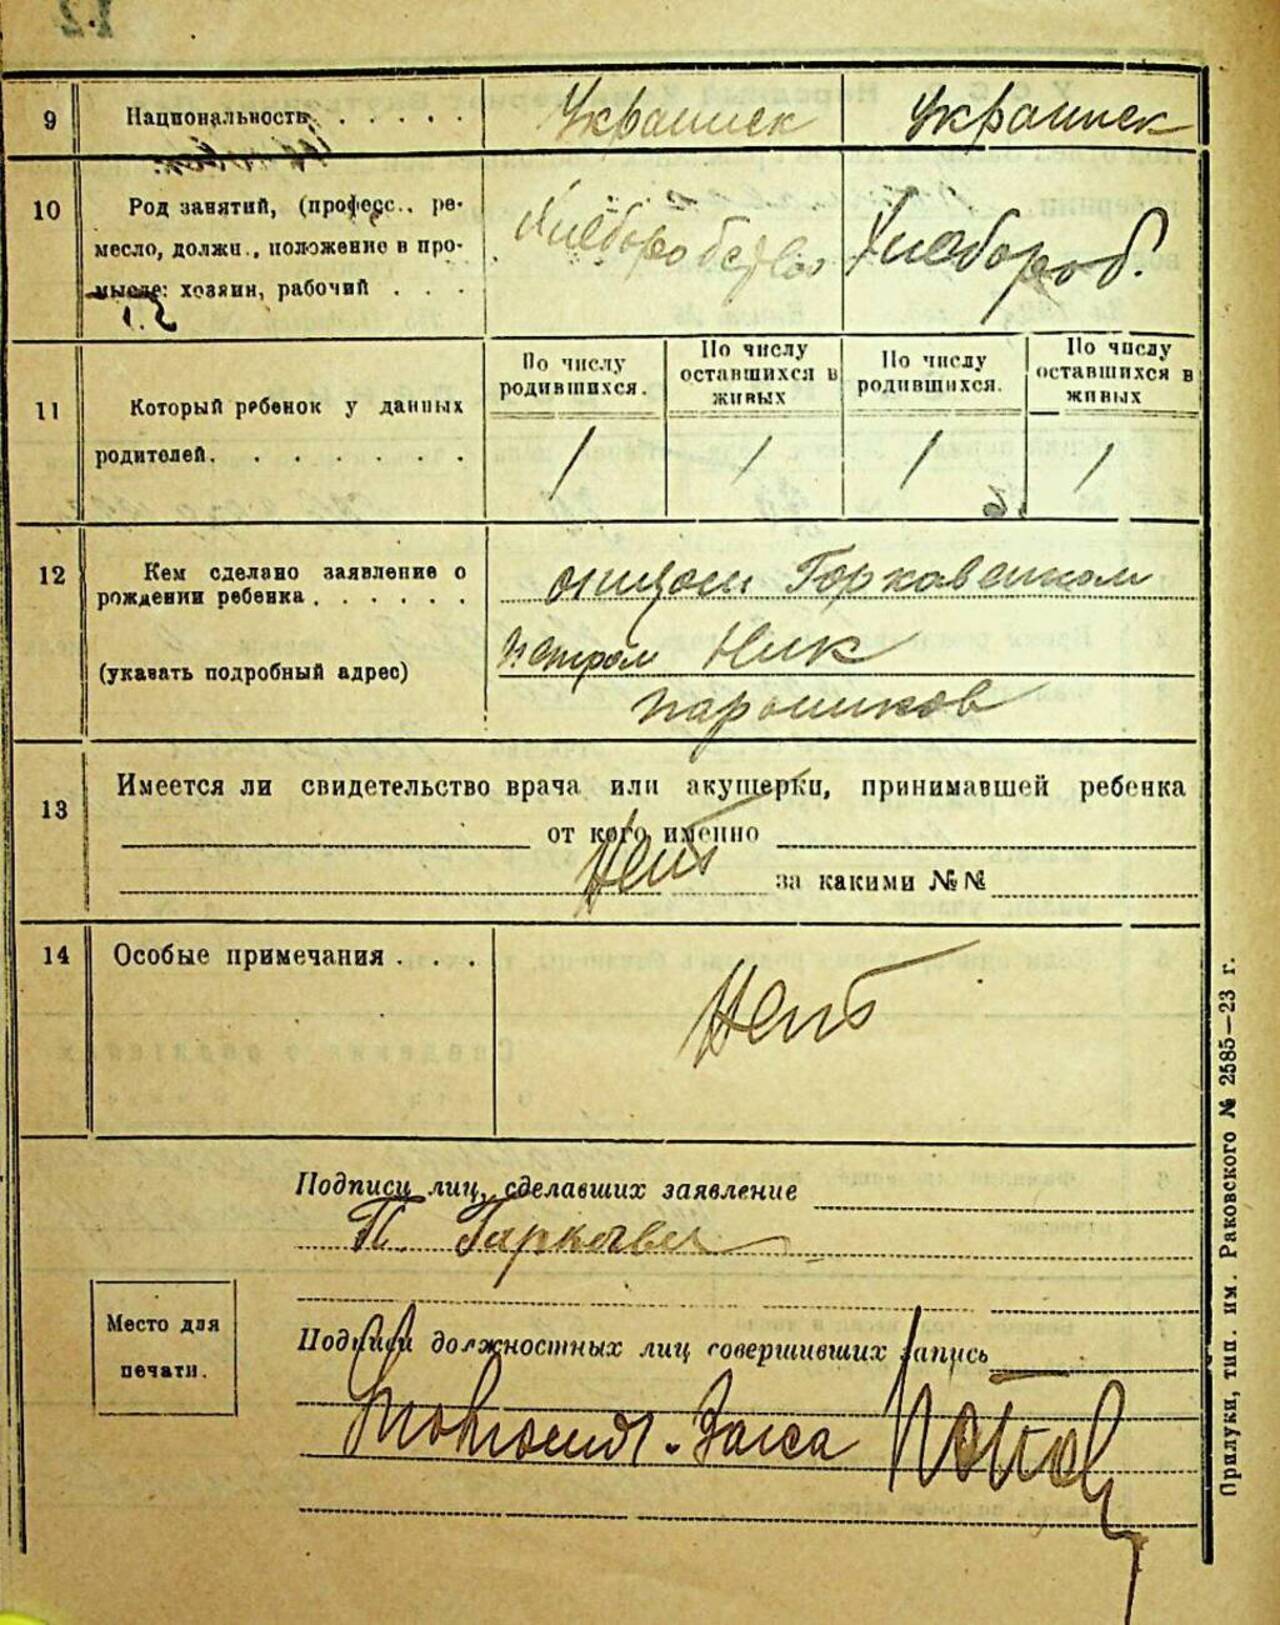 9 Национальность . . . . . Украинск Украинск
10 Род занятий, (професс., ре-
месло, должн., положение в про-
мысле: хозяин, рабочий . . .
Хлеборобство Хлебороб.
11 Который ребенок у данных
родителей. . . . . . .
По числу родившихся. По числу оставшихся в живых По числу родившихся. По числу оставшихся в живых
1 1 1 1
12 Кем сделано заявление о
рождении ребенка . . . . .
(указать подробный адрес)
отцом Горкавенком
Петром Ник
13 Имеется ли свидетельство врача или акушерки, принимавшей ребенка
от кого именно
Нет
за какими №№
14 Особые примечания . . . .
Нет
Подписи лиц, сделавших заявление
П. Гаркаве
Место для
печати.
Подписи должностных лиц совершивших запись
Загса
Прилуки, тип. им. Раковского № 2585—23 г.